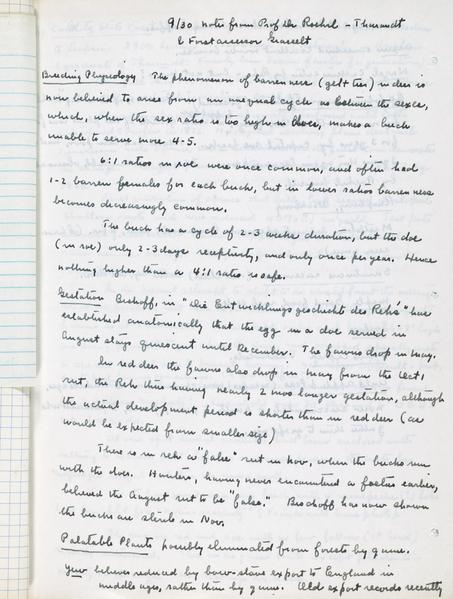 9/30 Notes from Prof Dr Roehrl - Tharandt
& Forstassessor Graselt
Breeding Physiology The phenomenon of barrenness (gelt tier) in deer is
now believed to arise from an unequal cycle as between the sexes,
which, when the sex ratio is too high in does, makes a buck
unable to serve more 4-5.
6:1 ratios in roe were once common, and often had
1-2 barren females for each buck, but in lower ratios barrenness
becomes decreasingly common.
The buck has a cycle of 2-3 weeks duration, but the doe
(in roe) only 2-3 days receptivity, and only once per year. Hence
nothing higher than a 4:1 ratio is safe.
Gestation Bischoff, in "Die Entwicklungsgeschichte des Rehs" has
established anatomically that the egg in a doe served in
August stays quiescent until December. The fawns drop in May.
In red deer the fawns also drop in May from the Oct,
rut, the Reh thus having nearly 2 mos longer gestation, although
the actual development period is shorter than in red deer (as
would be expected from smaller size)
There is in reh a "false" rut in Nov, when the bucks run
with the does. Hunters, having never encountered a foetus earlier,
believed the August rut to be "false." Bischoff has now shown
the bucks are sterile in Nov.
Palatable Plants possibly eliminated from forests by game.
Yew believes reduced by bow-stave export to England in
middle ages, rather than by game. Old export records recently